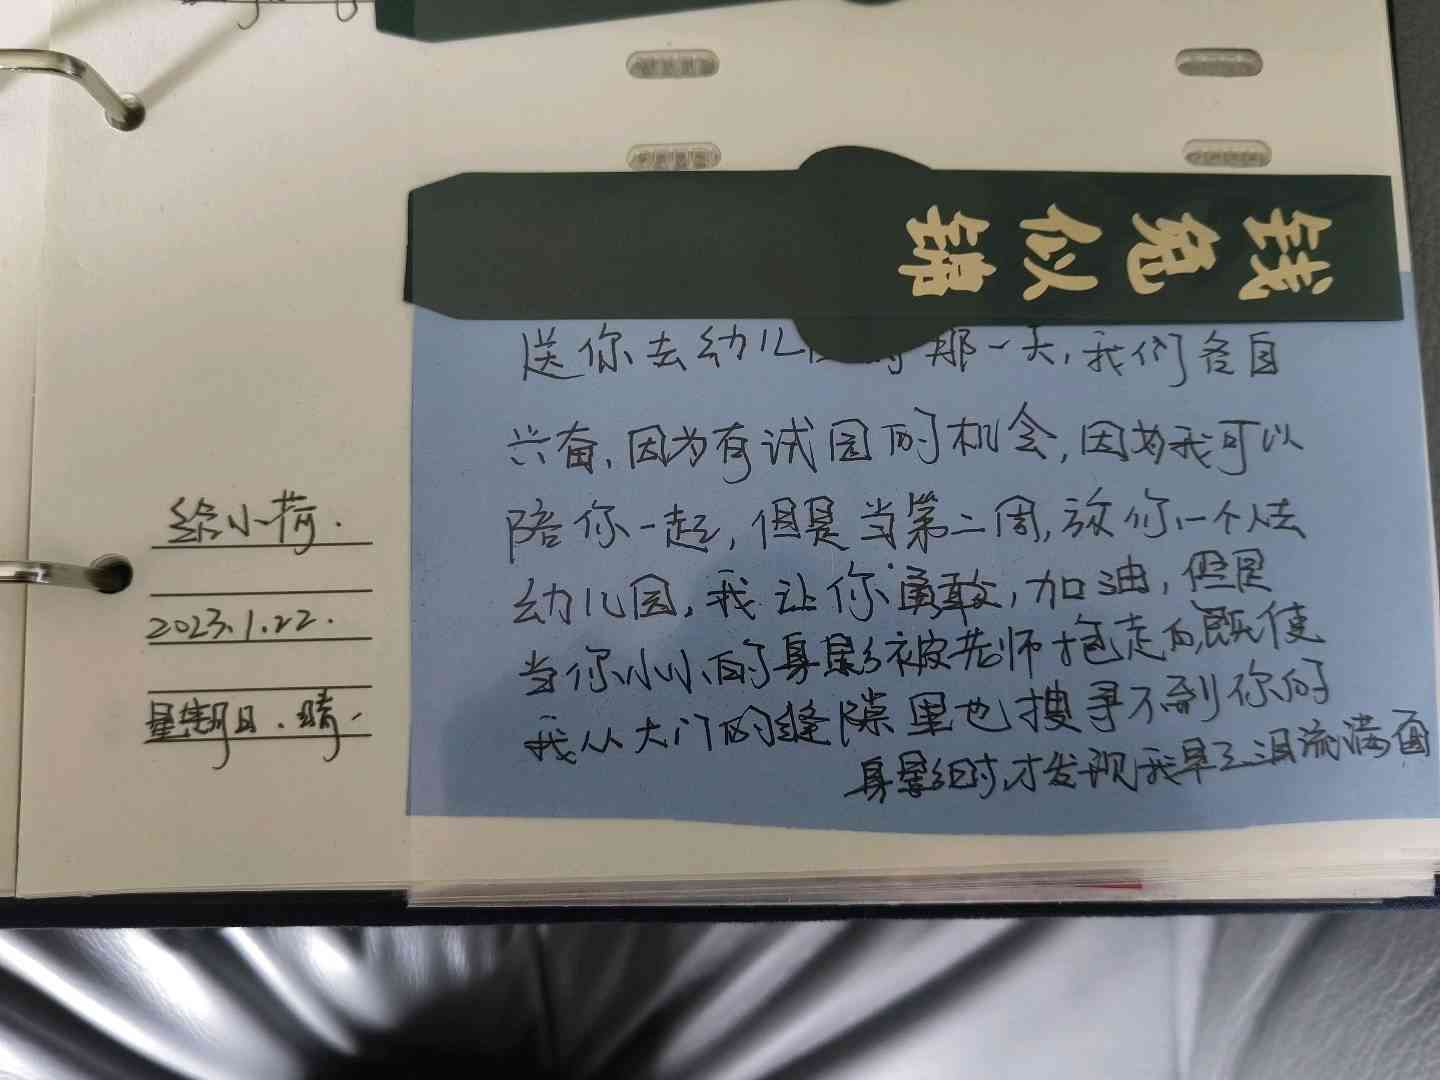 给小荷.
2023.1.22.
星期日.晴.
钱兔似锦
送你去幼儿园的那一天,我们各自
兴奋,因为有试园的机会,因为我可以
陪你一起,但是当第二周,放你一个人去
幼儿园,我让你勇敢,加油,但是
当你小小的身影被老师抱走后,既使
我从大门的缝隙里也搜寻不到你的
身影时,才发现我早已泪流满面